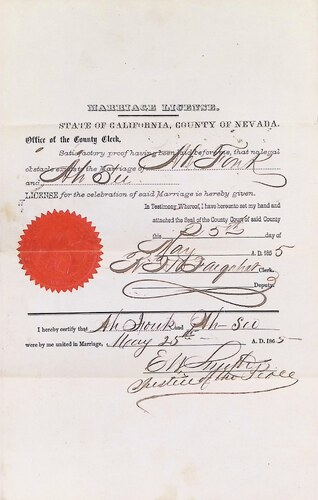 MARRIAGE LICENSE.
STATE OF CALIFORNIA, COUNTY OF NEVADA.
Office of the County Clerk,
Satisfactory proof having been had before me, that no legal
obstacle exists to the Marriage of Ah Fonk
and Ah Su
LICENSE for the celebration of said Marriage is hereby given.
In Testimony Whereof, I have hereunto set my hand and
attached the Seal of the County Court of said County
this 25th day of
May A. D. 1865
Clerk.
Deputy.
I hereby certify that Ah Fonk and Ah Su
were by me united in Marriage, May 25th A. D. 1865
E W Smith
Justice of the Peace